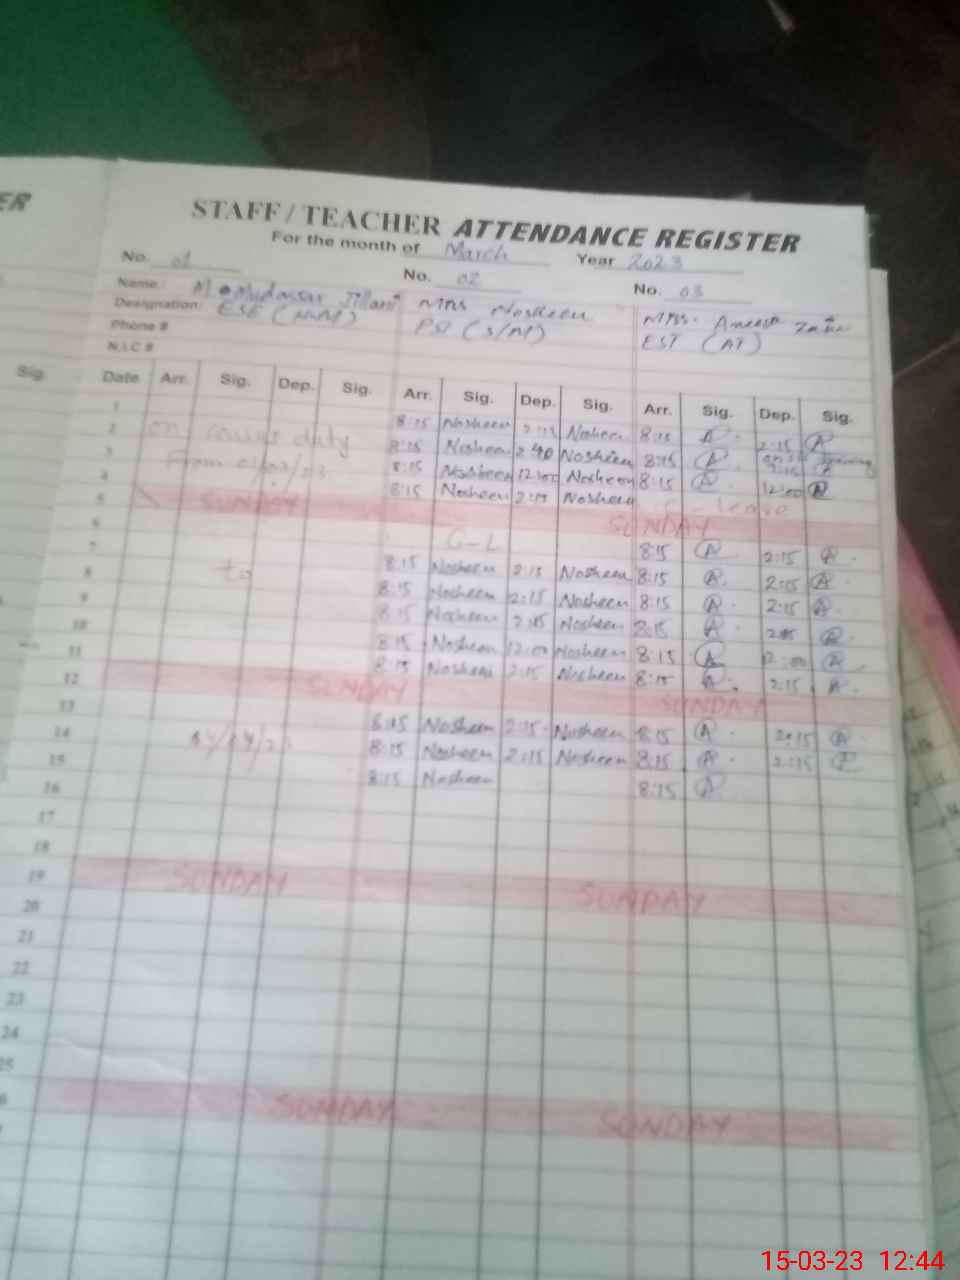 ER
STAFF / TEACHER ATTENDANCE REGISTER
For the month of March Year 2023
No. 01 No. 02 No. 03
Name: M. Mudassar Jillani Mrs Nosheen Miss. Aneesa
Designation: ESE (S/M) PST (S/M) EST (AT)
Phone #
N.I.C #
Sig. Date Arr. Sig. Dep. Sig. Arr. Sig. Dep. Sig. Arr. Sig. Dep. Sig.
1 8:15 Nosheen 2:15 Nosheen 8:15 A 2:15 A
2 on duty 8:15 Nosheen 2:40 Nosheen 8:15 A
3 From 8:15 Nosheen 12:00 Nosheen 8:15 A 12:00 A
4 8:15 Nosheen 2:15 Nosheen leave
5 SUNDAY SUNDAY
6 C-L 8:15 A 2:15 A
7 8:15 Nosheen 2:15 Nosheen 8:15 A 2:15 A
8 to 8:15 Nosheen 2:15 Nosheen 8:15 A 2:15 A
9 8:15 Nosheen 2:15 Nosheen 8:15 A 2:15 A
10 8:15 Nosheen 12:00 Nosheen 8:15 A 12:00 A
11 8:15 Nosheen 2:15 Nosheen 8:15 A 2:15 A
12 SUNDAY SUNDAY
13 8:15 Nosheen 2:15 Nosheen 8:15 A 2:15 A
14 8:15 Nosheen 2:15 Nosheen 8:15 A 2:15 A
15 8:15 Nosheen 8:15 A
16
17
18
19 SUNDAY SUNDAY
20
21
22
23
24
25
SUNDAY SUNDAY
15-03-23 12:44